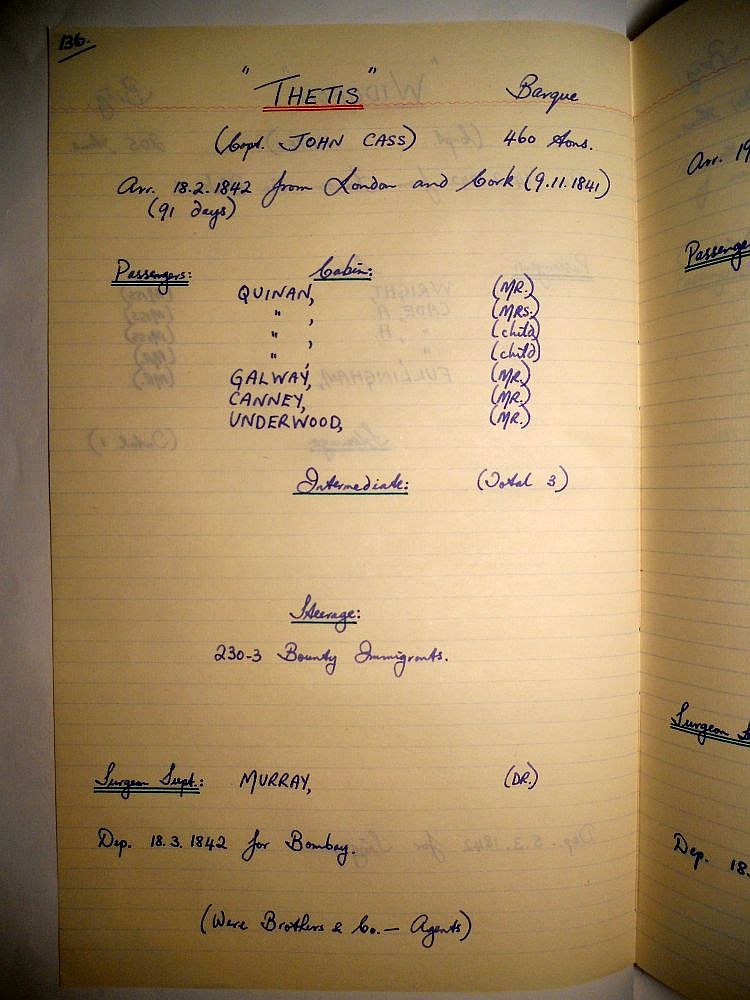 136.
"THETIS" Barque
(Capt. JOHN CASS) 460 tons.
Arr. 18.2.1842 from London and Cork (9.11.1841)
(91 days)
Passengers: Cabin:
QUINAN, (MR.)
" , (MRS.)
" , (child)
" , (child)
GALWAY, (MR.)
CANNEY, (MR.)
UNDERWOOD, (MR.)
Intermediate: (Total 3)
Steerage:
230-3 Bounty Immigrants.
Surgeon Supt.: MURRAY, (DR.)
Dep. 18.3.1842 for Bombay.
(Were Brothers & Co. — Agents)
Arr. 19
Passenge
Surgeon S
Dep. 18.